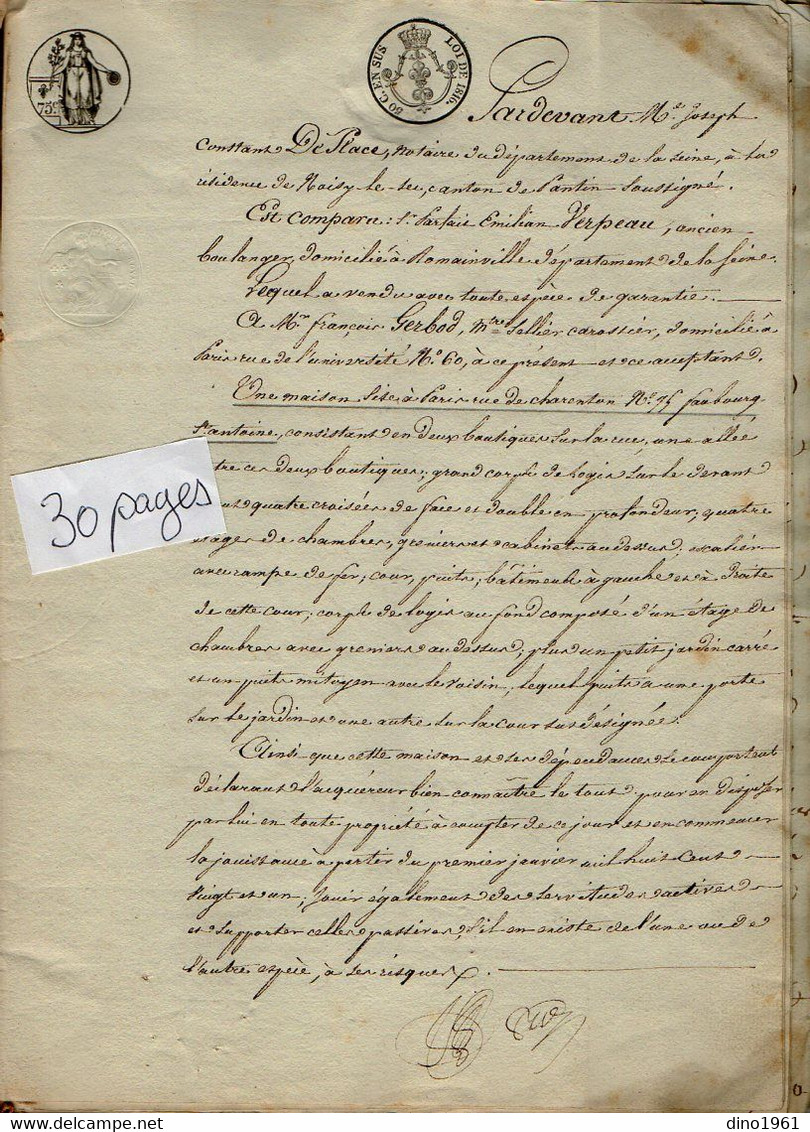 75c
50 C. EN SUS LOI DE 1816.
Pardevant Me. Joseph
Constant De Place, Notaire du département de la Seine, à la
résidence de Noisy-le-sec, canton de Pantin soussigné.
Est comparu: Sr. Parfait Emilien Verpeau, ancien
boulanger, domicilié à Romainville département de la Seine.
Lequel a vendu avec toute espèce de garantie.
A Mr. françois Gerbod, mtre. Sellier carossier, domicilié à
Paris rue de l'université No. 60, à ce présent et ce acceptant.
Une maison sise à Paris rue de charenton No. 75 faubourg
St. antoine, consistant en deux boutiques sur la rue, une allée
entre ces deux boutiques; grand corps de logis sur le devant
quatre croisées de face et double en profondeur, quatre
étages de chambres, greniers et cabinets au dessus; escalier
avec rampe de fer, cour, puits, bâtiments à gauche et à droite
de cette cour; corps de logis au fond composé d'un étage de
chambres avec greniers au dessus; plus un petit jardin carré
et un puits mitoyen avec le voisin, lequel puits a une porte
sur le jardin et une autre sur la cour sus désignée.
Ainsi que cette maison et ses dépendances se comportent
déclarant l'acquéreur bien connaître le tout, pour en disposer
par lui en toute propriété à compter de ce jour et en commencer
la jouissance à partir du premier janvier mil huit cent
vingt et un; jouir également des servitudes actives
et supporter celles passives, s'il en existe de l'une ou de
l'autre espèce, à ses risques.
30 pages
dino1961